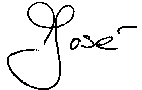 José